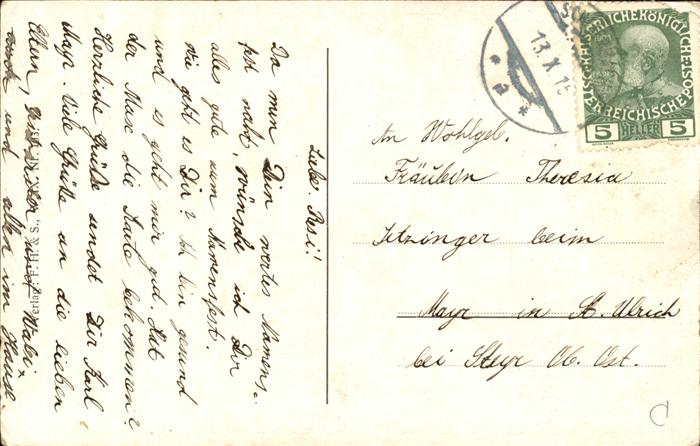 Liebe Resi!
Da nun Dein wertes Namens-
fest naht, wünsche ich Dir
alles gute zum Namensfest.
Wie geht es Dir? Ich bin gesund
und es geht mir gut. Hat
der Max die Karte bekommen?
Herzliche Grüße sendet Dir Karl
Mayr. Viele Grüße an die lieben
Eltern, und Wabi
auch und allen im Hause.
Verlag F. H. & S., W.
13. X. 15
KAISERLICHE KÖNIGLICHE ÖSTERREICHISCHE POST
5 HELLER 5
An Wohlgeb.
Fräulein Theresia
Itzinger beim
Mayr in St. Ulrich
bei Steyr Ob. Öst.